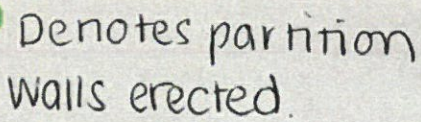 Denotes partition
walls erected.